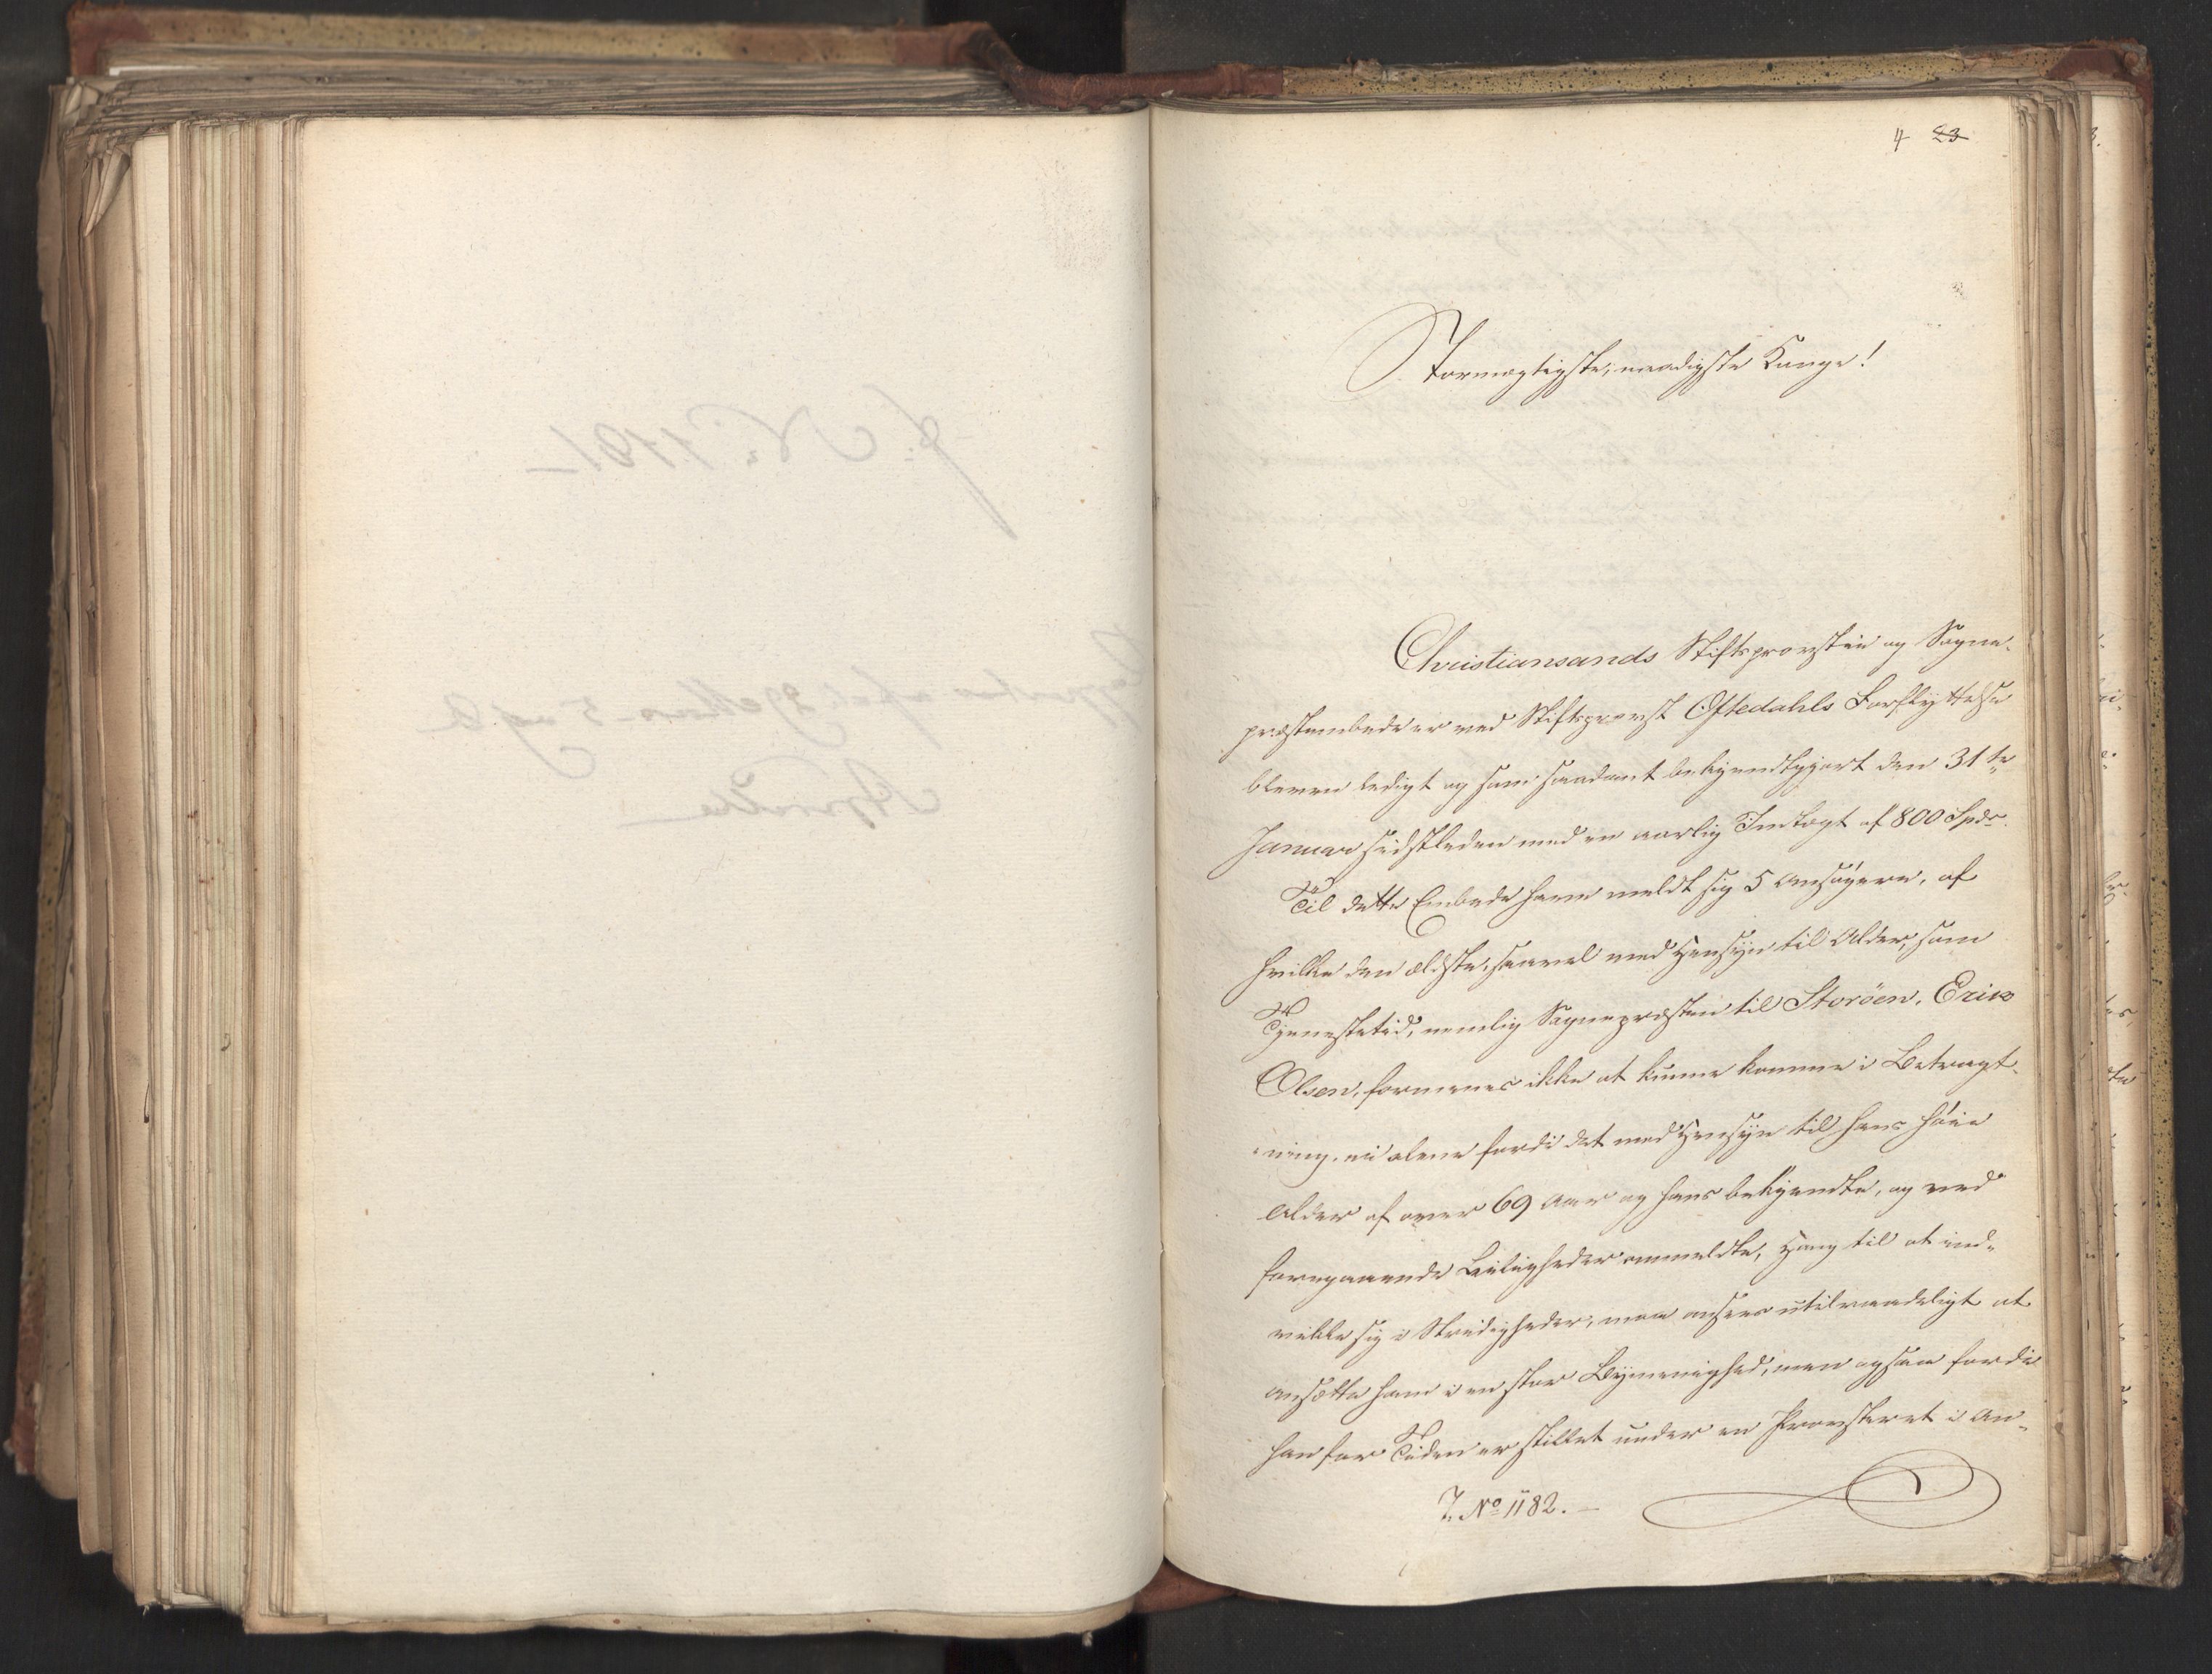 4 23
Stormægtigste, naadigste Konge!
Christiansands Stiftsprovstie og Sogne-
præstembede er ved Stiftsprovst Oftedahls Forflyttelse
bleven ledigt og som saadant bekjendtgjort den 31te
Januar sidstleden med en aarlig Indtægt af 800 Spdr.
Til dette Embede have meldt sig 5 Ansøgere, af
hvilke den ældste, saavel med Hensyn til Alder, som
Tjenestetid, nemlig Sognepræsten til Storöen, Erik
Olsen, formenes ikke at kunne komme i Betragt-
ning, ei alene fordi det med Hensyn til hans høie
Alder af over 69 Aar og hans bekjendte, og ved
foregaaende Leiligheder anmeldte, Hang til at ind-
vikle sig i Stridigheder, maa ansees utilraadeligt at
ansætte ham i en stor Bymenighed, men ogsaa fordi
han for Tiden er stillet under en Provsteret i An-
J. No 1182.-